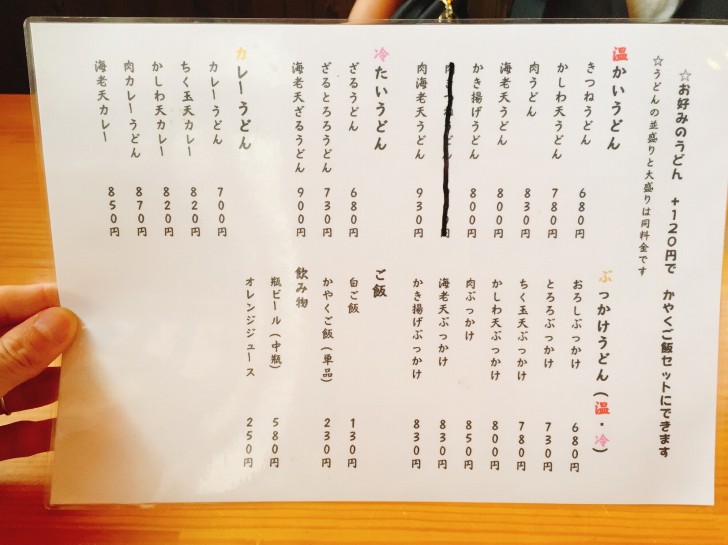 ☆お好みのうどん +120円で かやくご飯セットにできます
☆うどんの並盛りと大盛りは同料金です
温かいうどん
きつねうどん 680円
かしわ天うどん 780円
肉うどん 830円
海老天うどん 800円
かき揚げうどん 800円
肉海老天うどん 930円
冷たいうどん
ざるうどん 680円
ざるとろろうどん 730円
海老天ざるうどん 900円
カレーうどん
カレーうどん 700円
ちく玉天カレー 820円
かしわ天カレー 820円
肉カレーうどん 870円
海老天カレー 850円
ぶっかけうどん（温・冷）
おろしぶっかけ 680円
とろろぶっかけ 730円
ちく玉天ぶっかけ 780円
かしわ天ぶっかけ 800円
肉ぶっかけ 850円
海老天ぶっかけ 830円
かき揚げぶっかけ 830円
ご飯
白ご飯 130円
かやくご飯（単品） 230円
飲み物
瓶ビール（中瓶） 580円
オレンジジュース 250円